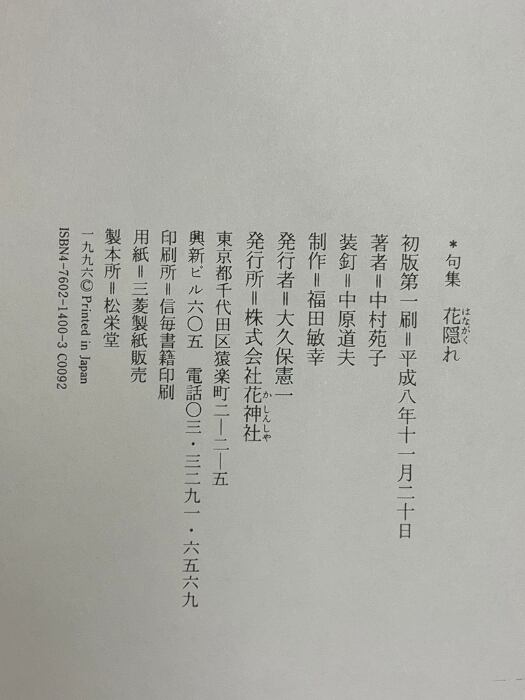 *句集 花隠れ
はながく
初版第一刷＝平成八年十一月二十日
著者＝中村苑子
装釘＝中原道夫
制作＝福田敏幸
発行者＝大久保憲一
発行所＝株式会社花神社
かしんしゃ
東京都千代田区猿楽町二―二―五
興新ビル六〇五 電話〇三・三二九一・六五六九
印刷所＝信毎書籍印刷
用紙＝三菱製紙販売
製本所＝松栄堂
一九九六© Printed in Japan
ISBN4-7602-1400-3 C0092